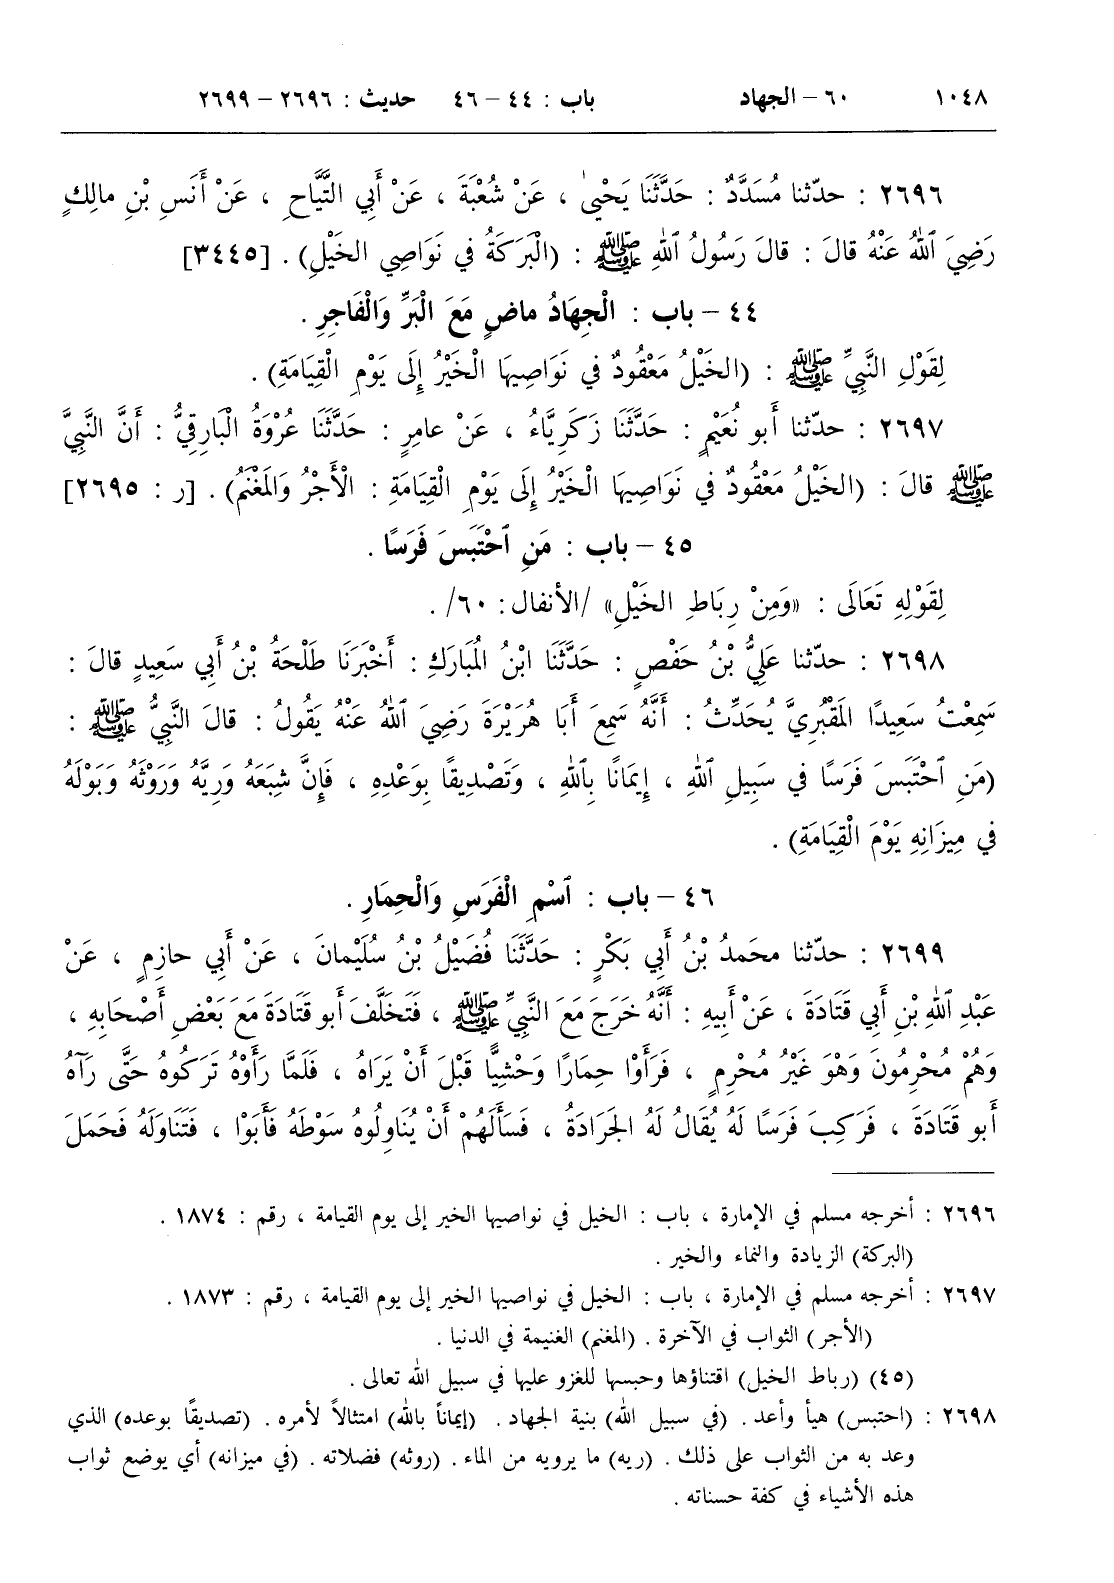 ١٠٤٨ ٦٠ – الجهاد باب : ٤٤ – ٤٦ حديث : ٢٦٩٦ – ٢٦٩٩
٢٦٩٦ : حدّثنا مُسَدَّدٌ : حَدَّثَنَا يَحْيىٰ ، عَنْ شُعْبَةَ ، عَنْ أَبِي التَّيَّاحِ ، عَنْ أَنَسِ بْنِ مالِكٍ
رَضِيَ ٱللهُ عَنْهُ قالَ : قالَ رَسُولُ ٱللهِ ﷺ : (الْبَرَكَةُ في نَوَاصِي الخَيْلِ) . [٣٤٤٥]
٤٤ – باب : الْجِهَادُ ماضٍ مَعَ الْبَرِّ وَالْفَاجِرِ .
لِقَوْلِ النَّبِيِّ ﷺ : (الخَيْلُ مَعْقُودٌ في نَوَاصِيهَا الْخَيْرُ إِلَى يَوْمِ الْقِيَامَةِ) .
٢٦٩٧ : حدّثنا أَبو نُعَيْمٍ : حَدَّثَنَا زَكَرِيَّاءُ ، عَنْ عامِرٍ : حَدَّثَنَا عُرْوَةُ الْبَارِقِيُّ : أَنَّ النَّبِيَّ
ﷺ قالَ : (الخَيْلُ مَعْقُودٌ في نَوَاصِيهَا الْخَيْرُ إِلَى يَوْمِ الْقِيَامَةِ : الْأَجْرُ وَالمَغْنَمُ) . [ر : ٢٦٩٥]
٤٥ – باب : مَنِ ٱحْتَبَسَ فَرَسًا .
لِقَوْلِهِ تَعَالَى : «وَمِنْ رِبَاطِ الخَيْلِ» /الأنفال: ٦٠/ .
٢٦٩٨ : حدّثنا عَلِيُّ بْنُ حَفْصٍ : حَدَّثَنَا ابْنُ المُبَارَكِ : أَخْبَرَنَا طَلْحَةُ بْنُ أَبي سَعِيدٍ قالَ :
سَمِعْتُ سَعِيدًا المَقْبُرِيَّ يُحَدِّثُ : أَنَّهُ سَمِعَ أَبَا هُرَيْرَةَ رَضِيَ ٱللهُ عَنْهُ يَقُولُ : قالَ النَّبِيُّ ﷺ :
(مَنِ ٱحْتَبَسَ فَرَسًا في سَبِيلِ ٱللهِ ، إِيمَانًا بِٱللهِ ، وَتَصْدِيقًا بِوَعْدِهِ ، فَإِنَّ شِبَعَهُ وَرِيَّهُ وَرَوْثَهُ وَبَوْلَهُ
في مِيزَانِهِ يَوْمَ الْقِيَامَةِ) .
٤٦ – باب : ٱسْمِ الْفَرَسِ وَالْحِمَارِ .
٢٦٩٩ : حدّثنا محَمدُ بْنُ أَبِي بَكْرٍ : حَدَّثَنَا فُضَيْلُ بْنُ سُلَيْمانَ ، عَنْ أَبِي حازِمٍ ، عَنْ
عَبْدِ اللهِ بْنِ أَبِي قَتَادَةَ ، عَنْ أَبِيهِ : أَنَّهُ خَرَجَ مَعَ النَّبِيِّ ﷺ ، فَتَخَلَّفَ أَبو قَتَادَةَ مَعَ بَعْضِ أَصْحَابِهِ ،
وَهُمْ مُحْرِمُونَ وَهْوَ غَيْرُ مُحْرِمٍ ، فَرَأَوْا حِمارًا وَحْشِيًّا قَبْلَ أَنْ يَرَاهُ ، فَلَمَّا رَأَوْهُ تَرَكُوهُ حَتَّى رَآهُ
أَبو قَتَادَةَ ، فَرَكِبَ فَرَسًا لَهُ يُقَالُ لَهُ الجَرَادَةُ ، فَسَأَلَهُمْ أَنْ يُنَاوِلُوهُ سَوْطَهُ فَأَبَوْا ، فَتَنَاوَلَهُ فَحَمَلَ
٢٦٩٦ : أخرجه مسلم في الإمارة ، باب : الخيل في نواصيها الخير إلى يوم القيامة ، رقم : ١٨٧٤ .
(البركة) الزيادة والنماء والخير .
٢٦٩٧ : أخرجه مسلم في الإمارة ، باب : الخيل في نواصيها الخير إلى يوم القيامة ، رقم : ١٨٧٣ .
(الأجر) الثواب في الآخرة . (المغنم) الغنيمة في الدنيا .
(٤٥) (رباط الخيل) اقتناؤها وحبسها للغزو عليها في سبيل الله تعالى .
٢٦٩٨ : (احتبس) هيأ وأعد . (في سبيل الله) بنية الجهاد . (إيماناً بالله) امتثالاً لأمره . (تصديقًا بوعده) الذي
وعد به من الثواب على ذلك . (ريه) ما يرويه من الماء . (روثه) فضلاته . (في ميزانه) أي يوضع ثواب
هذه الأشياء في كفة حسناته .